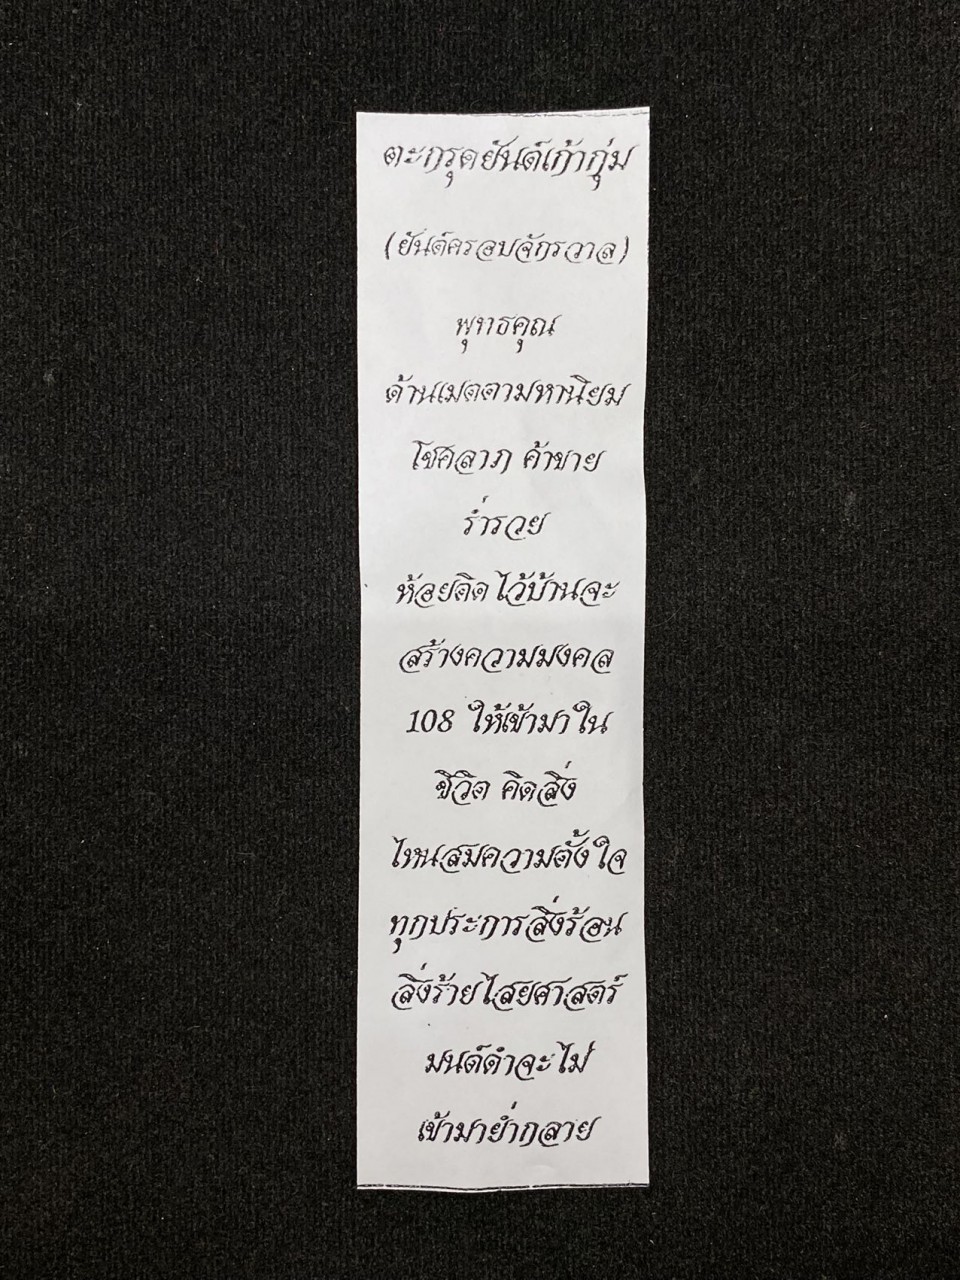 ตะกรุดยันต์เก้ากุ่ม
(ยันต์ครอบจักรวาล)
พุทธคุณ
ด้านเมตตามหานิยม
โชคลาภ ค้าขาย
ร่ำรวย
ห้อยติดไว้บ้านจะ
สร้างความมงคล
108 ให้เข้ามาใน
ชีวิต คิดสิ่ง
ไหนสมความตั้งใจ
ทุกประการสิ่งร้อน
สิ่งร้ายไสยศาสตร์
มนต์ดำจะไม่
เข้ามาย่ำกลาย